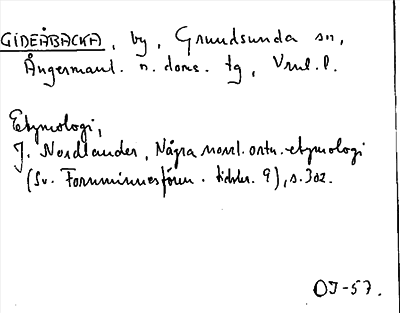 GIDEÅBACKA, by, Grundsunda sn,
Ångermanl. n. doms. tg, Vnl. l.
Etymologi,
J. Nordlander, Några norrl. ortn.-etymologi
(Sv. Fornminnesfören. tidskr. 9), s. 302.
OJ-57.